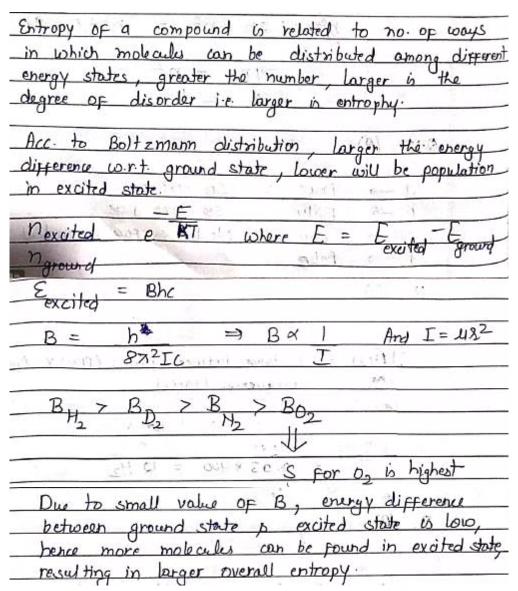 Entropy of a compound is related to no. of ways
in which molecules can be distributed among different
energy states, greater the number, larger is the
degree of disorder i.e. larger in entrophy.
Acc. to Boltzmann distribution, larger the energy
difference w.r.t. ground state, lower will be population
in excited state.
n excited / n ground e^(-E/KT) where E = E excited - E ground
Ɛ excited = Bhc
B = h / 8π²IC ⇒ B ∝ 1/I And I = μr²
B H₂ > B D₂ > B N₂ > B O₂
⇓
S for O₂ is highest
Due to small value of B, energy difference
between ground state & excited state is low,
hence more molecules can be found in excited state,
resulting in larger overall entropy.